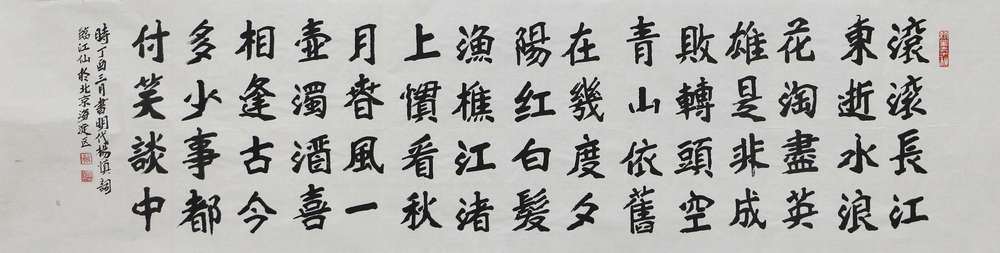 滚滚長江
東逝水浪
花淘盡英
雄是非成
敗轉頭空
青山依舊
在幾度夕
陽红白髮
漁樵江渚
上慣看秋
月春風一
壶濁酒喜
相逢古今
多少事都
付笑談中
時丁酉三月書明代楊慎詞
臨江仙於北京海淀區